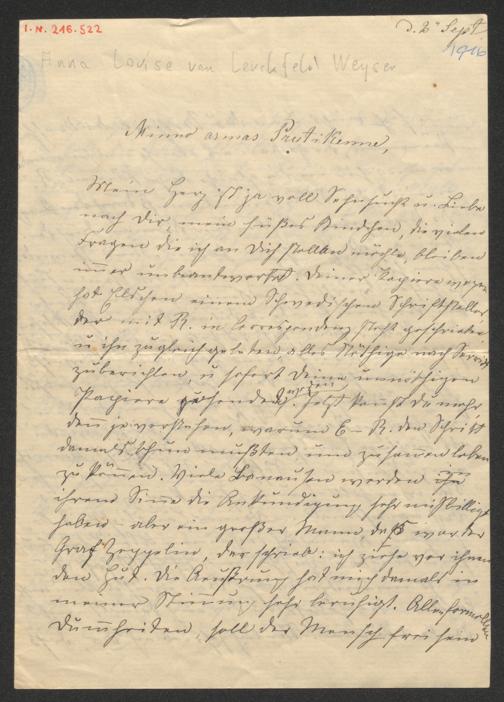 I. N. 216.522
d. 2ⁿ Sept
1916
Anna Louise von Lerchfeld Weyser
Minno armas Prutikenne,
Mein Herz ist ja voll Sehnsucht u. Liebe
nach Dir, mein süßes Kindchen, die vielen
Fragen die ich an Dich stellen möchte, bleiben
immer unbeantwortet. Deiner Papiere wegen
hat Elschen einem Schwedischen Schriftsteller
der mit R. in Correspondenz steht geschrieben
u ihn zugleich gebeten alles Nöthige nach
zuberichten, u sofort Deine unnöthigen
Papiere zusenden. Jetzt kannst Du mehr
denn je verstehen, warum E– R. den Schritt
damals thun mußten um zusammen leben
zu können. Viele Banausen werden
ihrem Sinne die Ankündigung sehr mißbilligt
haben – aber ein großer Mann, das war der
Graf Zeppelin, der schrieb: ich ziehe vor ihnen
den Hut. Die Aeußerung hat mich damals in
meiner Stimmung sehr beruhigt. Allen formellen
Dummheiten, soll der Mensch frei sein